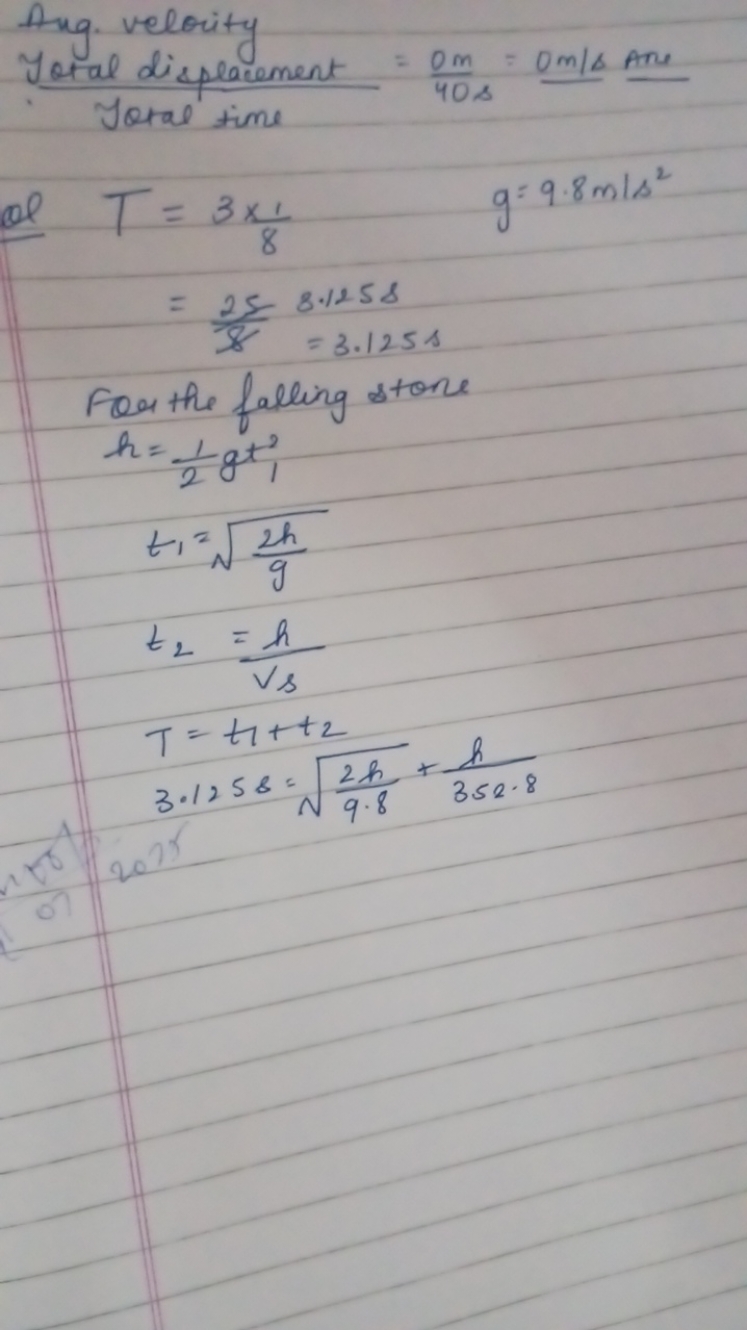 Avg. velocity
Total displacement / Total time = 0m/40s = 0m/s Ans
sol T = 3 × 1/8 g = 9.8m/s²
= 25/8 3.125s
= 3.125s
For the falling stone
h = 1/2 gt₁²
t₁ = √(2h/g)
t₂ = h/Vs
T = t₁ + t₂
3.125s = √(2h/9.8) + h/352.8
2025